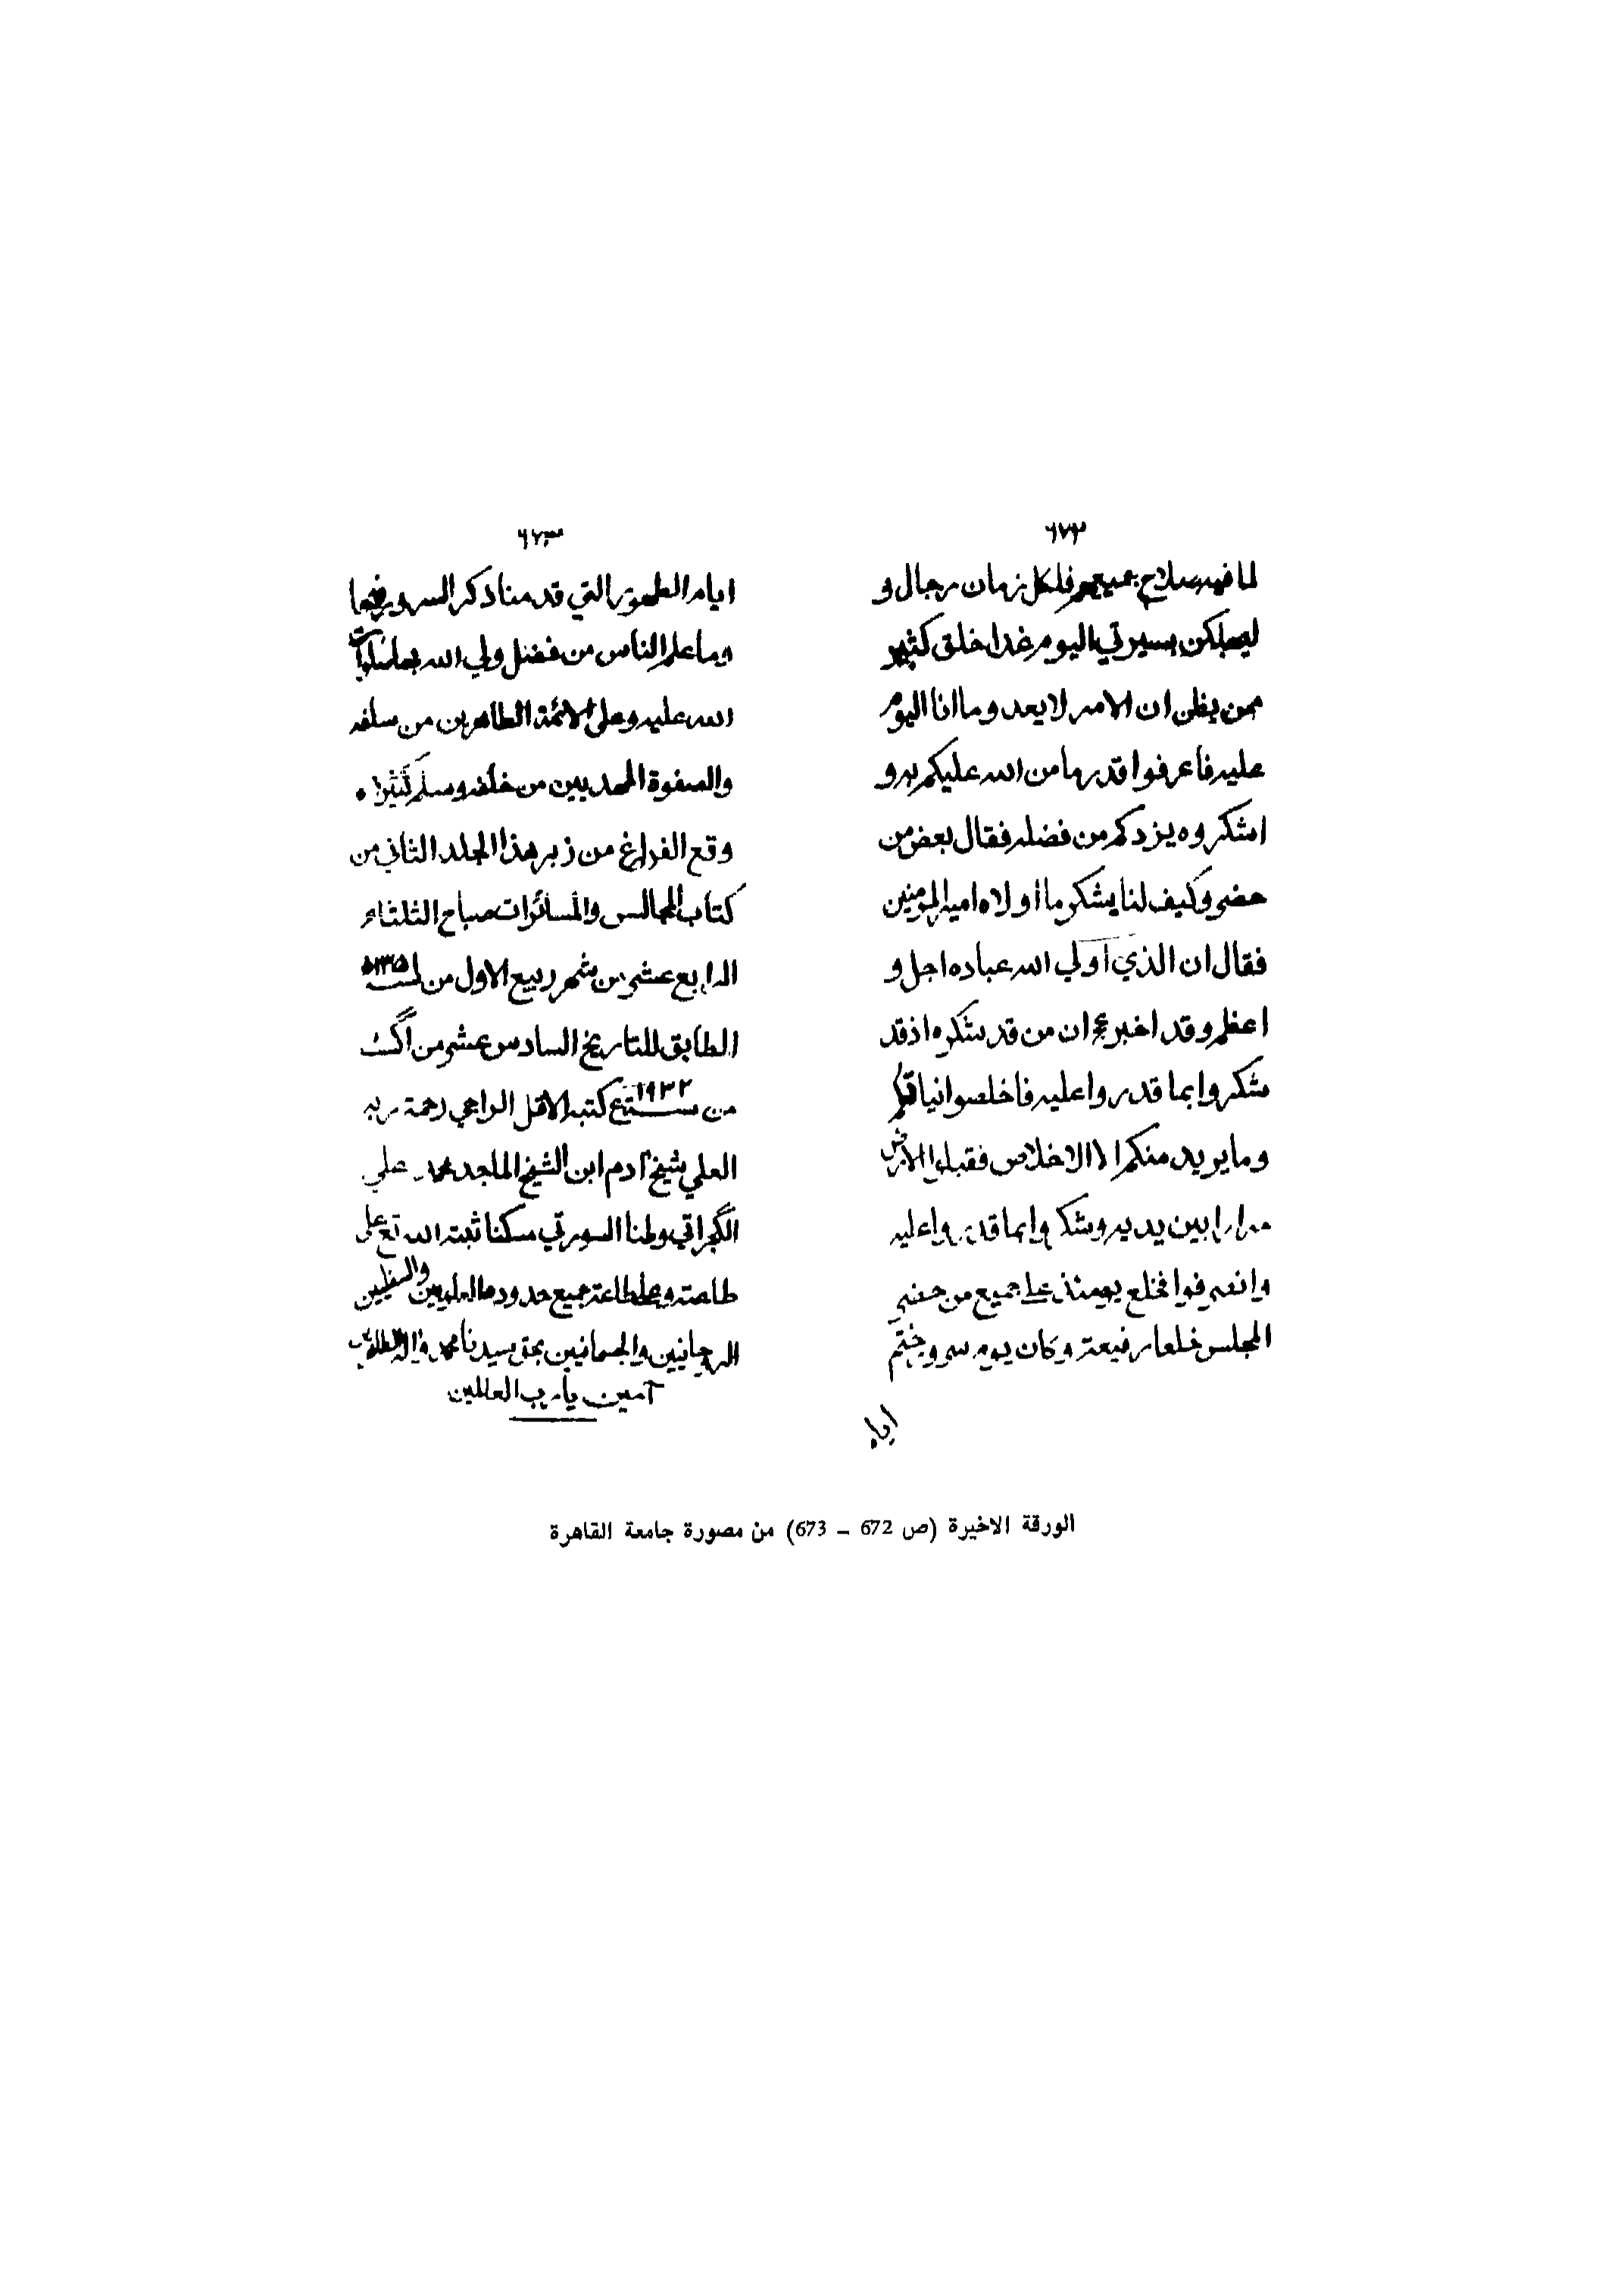 ٦٧٢
لما فيه صلاح جميعهم فلكل زمان رجال و
ليهلكن بسيرتي اليوم غدا خلق كثير
ممن يظن ان الامر لا يعد وما انا اليوم
عليه فاعرفوا قدر ما من الله عليكم به و
اشكروه يزدكم من فضله فقال بعض من
حضر وكيف لنا بشكر ما اولاه امير المؤمنين
فقال ان الذي اولي الله عباده اجل و
اعظم وقد اخبر عج ان من قد شكره اذ قد
شكروا بما قدروا عليه فاخلصوا نياتكم
وما يريد منكم الا الاخلاص فقبلوا الارض
مرارا بين يديه وشكروا بما قدروا عليه
وانصرفوا فخلع يومئذ على جميع من حضر
المجلس خلعا رفيعة وكان يوم سرور ختم
ايام
٦٧٣
ايام الطهور التي قدمنا ذكر السرور فيها
وما علم الناس من فضل ولي الله بها صلوات
الله عليه وعلى الائمة الطاهرين من سلفه
والصفوة المهديين من خلفه وسلم كثيرا .
وقع الفراغ من زبر هذا الجلد الثاني من
كتاب المجالس والمسائرات صباح الثلثاء
الرابع عشر من شهر ربيع الاول من
المطابق للتاريخ السادس عشر من اگست
من سنة ١٩٣٢ع كتبه الاقل الراجي رحمة ربه
العلي شيخ آدم ابن الشيخ الماجد محمد علي
الگجراتي وطنا السورتي مسكنا ثبته الله تع على
طاعته وعلى طاعة جميع حدوده العلويين والسفليين
الروحانيين والجسمانيين بحق سيدنا محمد وآله الطاهرين
آمين يا رب العالمين
الورقة الاخيرة (ص 672 – 673) من مصورة جامعة القاهرة